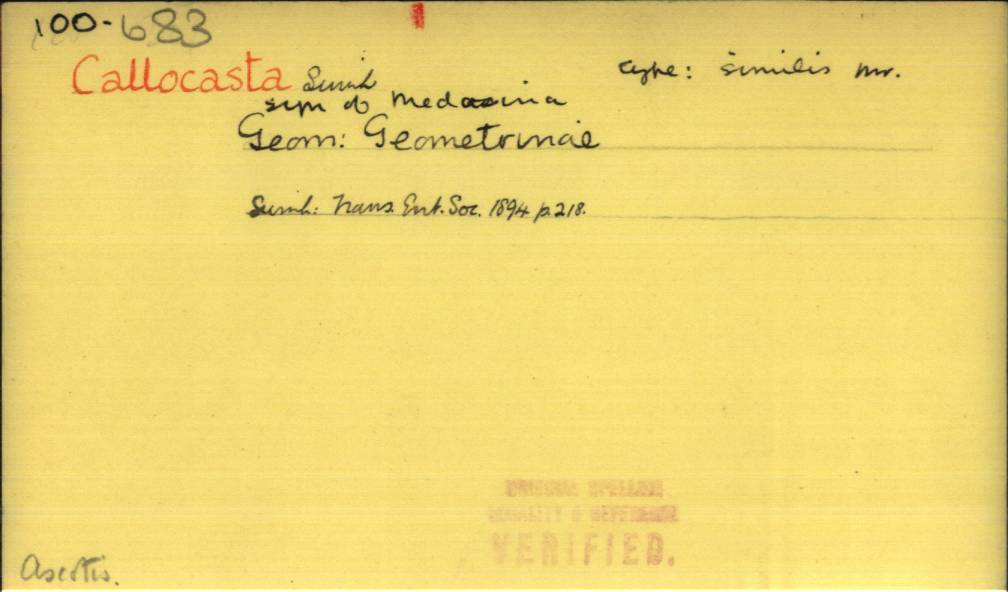 100-683
Callocasta Swinh type: similis Mr.
syn of Medasina
Geom: Geometrinae
Swinh: Trans. Ent. Soc. 1894 p. 218.
ORIGINAL SPELLING
LOCALITY & REFERENCE
VERIFIED.
Ascotis.